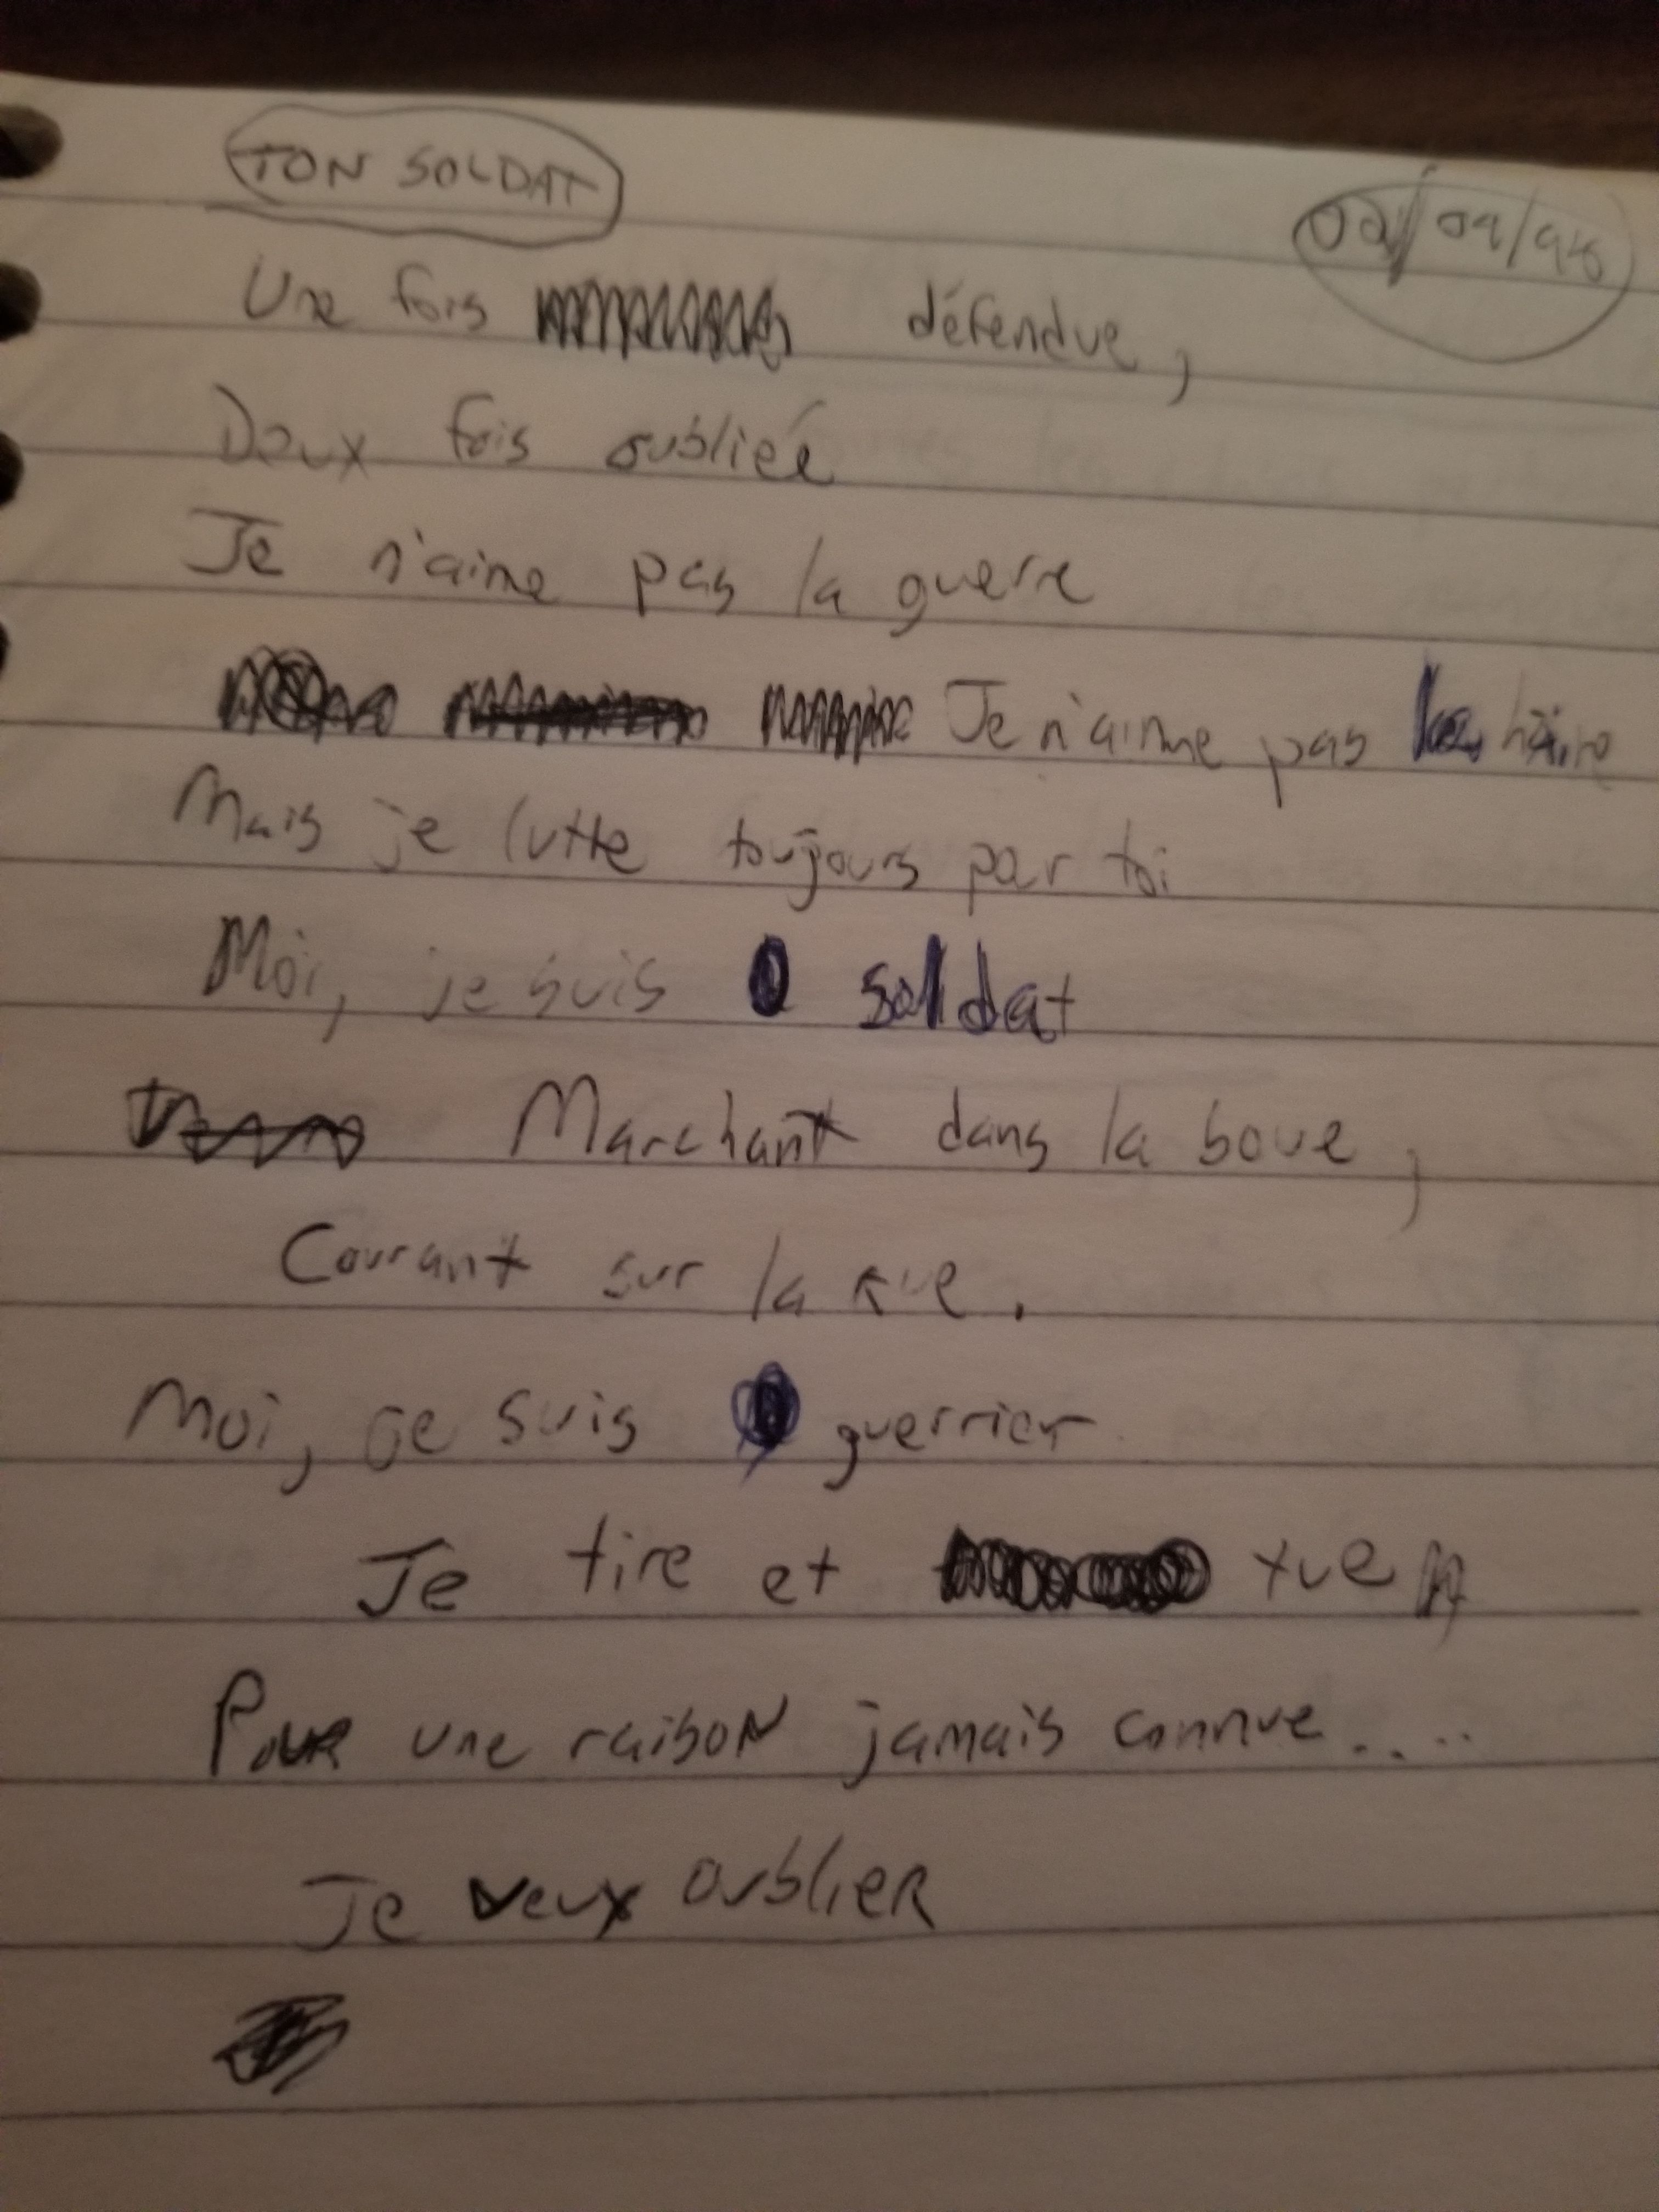 TON SOLDAT
Une fois défendue,
Deux fois oubliée
Je n'aime pas la guerre
Je n'aime pas
Mais je lutte toujours par toi
Moi, je suis soldat
Marchant dans la boue,
Courant sur la rue.
Moi, je suis guerrier
Je tire et tue
Pour une raison jamais connue....
Je veux oublier